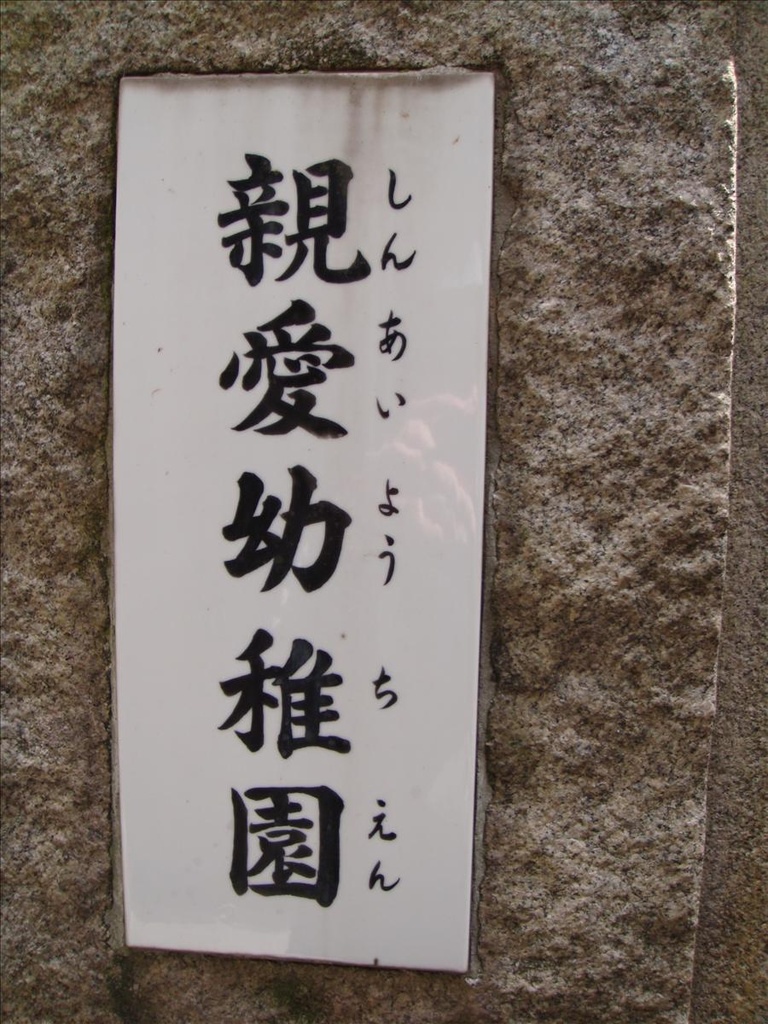 親愛幼稚園
しんあいようちえん